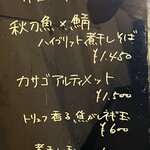 秋刀魚×鯖
ハイブリット煮干しそば
￥1.450
カサゴアルティメット
￥1.500
トリュフ香る焦がしネギ玉
￥600